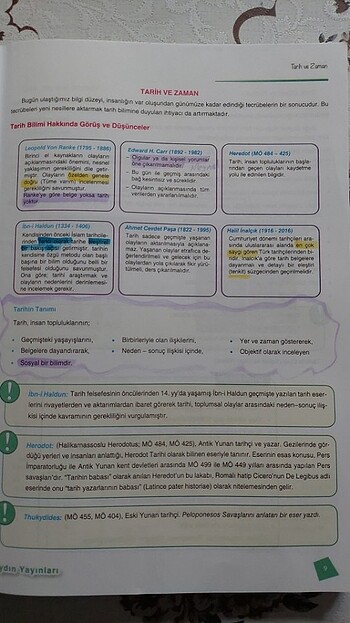 Tarih ve Zaman
TARİH VE ZAMAN
Bugün ulaştığımız bilgi düzeyi, insanlığın var oluşundan günümüze kadar edindiği tecrübelerin bir sonucudur. Bu
tecrübeleri yeni nesillere aktarmak tarih bilimine duyulan ihtiyacı da artırmaktadır.
Tarih Bilimi Hakkında Görüş ve Düşünceler
Leopold Von Ranke (1795 - 1886)
Birinci el kaynakların olayların
açıklanmasındaki önemini, nesnel
yaklaşımın gerekliliğini dile getir-
miştir. Olayların özelden genele
doğru (Tüme varım) incelenmesi
gerekliliğini savunmuştur.
Ranke'ye göre belge yoksa tarih
yoktur.
Edward H. Carr (1892 - 1982)
– Olgular ya da kişisel yorumlar
öne çıkarılmamalı
– Bu gün ile geçmiş arasındaki
bağ kesintisiz ve süreklidir.
– Olayların açıklanmasında tüm
verilerden yararlanılmalıdır.
Herodot (MÖ 484 – 425)
Tarih, insan topluluklarının başla-
rından geçen olayları kaydetme
yolu ile edinilen bilgidir.
İbn-i Haldun (1334 - 1406)
Kendisinden önceki İslam tarihçile-
rinden farklı olarak tarihe eleştirel
bir bakış açısı getirmiştir. tarihin
kendisine özgü metodu olan başlı
başına bir bilim olduğunu belli bir
felsefesi olduğunu savunmuştur.
Ona göre; tarihi araştırmak ve
olayların nedenlerini derinlemesi-
ne incelemek gerekir.
Ahmet Cevdet Paşa (1822 - 1995)
Tarih sadece geçmişte yaşanan
olayların aktarımasıyla açıklana-
maz. Yaşanan olaylar etraflıca de-
ğerlendirilmeli ve gelecek için bu
olaylardan yola çıkılarak fikir yürü-
tülmeli, ders çıkarılmalıdır.
Halil İnalçık (1916 - 2016)
Cumhuriyet dönemi tarihçileri ara-
sında uluslararası alanda en çok
saygı gören Türk tarihçilerinden bi-
ridir. İnalcık'a göre tarih belgelere
dayanmalı ve detaylı bir eleştiri
(tenkit) süzgecinden geçirilmelidir.
Tarihin Tanımı
Tarih, insan topluluklarının;
• Geçmişteki yaşayışlarını,
• Birbirleriyle olan ilişkilerini,
• Yer ve zaman göstererek,
• Belgelere dayandırarak,
• Neden – sonuç ilişkisi içinde,
• Objektif olarak inceleyen
• Sosyal bir bilimdir.
İbn-i Haldun: Tarih felsefesinin öncülerinden 14. yy'da yaşamış İbn-i Haldun geçmişte yazılan tarih eser-
lerini rivayetlerden ve aktarımlardan ibaret görerek tarihi, toplumsal olaylar arasındaki neden–sonuç iliş-
kisi içinde kavramının gerekliliğini vurgulamıştır.
Herodot: (Halikarnassoslu Herodotus; MÖ 484, MÖ 425), Antik Yunan tarihçi ve yazar. Gezilerinde gör-
düğü yerleri ve insanları anlattığı, Herodot Tarihi olarak bilinen eseriyle tanınır. Eserinin esas konusu, Pers
İmparatorluğu ile Antik Yunan kent devletleri arasında MÖ 499 ile MÖ 449 yılları arasında yapılan Pers
savaşları'dır. "Tarihin babası" olarak anılan Herodot'un bu lakabı, Romalı hatip Cicero'nun De Legibus adlı
eserinde onu "tarih yazarlarının babası" (Latince pater historiae) olarak nitelemesinden gelir.
Thukydides: (MÖ 455, MÖ 404), Eski Yunan tarihçi. Peloponesos Savaşlarını anlatan bir eser yazdı.
ydın Yayınları
9